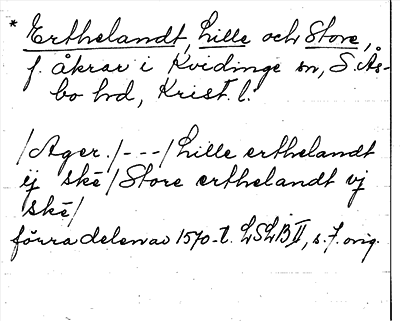 * Erthelandt, Lille och Store,
f. åkrar i Kvidinge sn, S. Ås-
bo hd, Krist. l.
/Ager./---/Lille erthelandt
ij skē/Store erthelandt vj
skē/
förra delen av 1570-t. LSLB II, s. 7. orig.